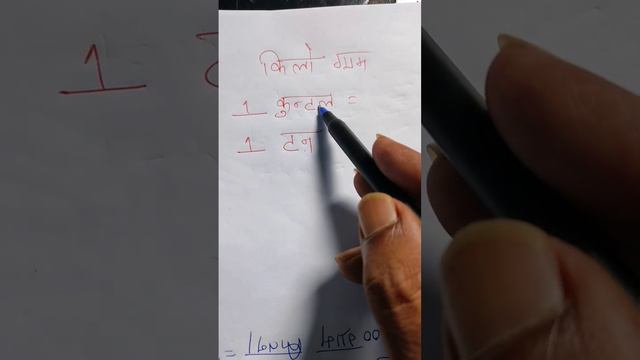 किलो ग्राम
1 कुन्टल =
1 टन